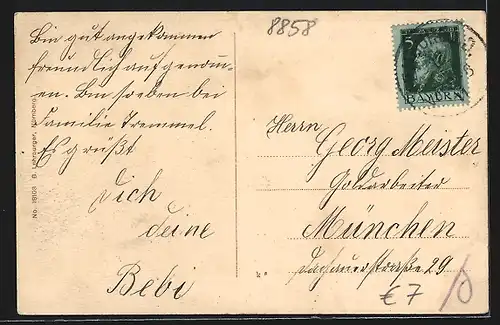 8858
Bin gut angekommen
freundlich aufgenom-
men. Bin soeben bei
Familie Tremmel.
Es grüßt
Dich
deine
Bebi
No. 18108 B. Lehrburger, Nürnberg
5
BAYERN
Herrn
Georg Meister
Goldarbeiter
München
Dachauerstraße 29
€7